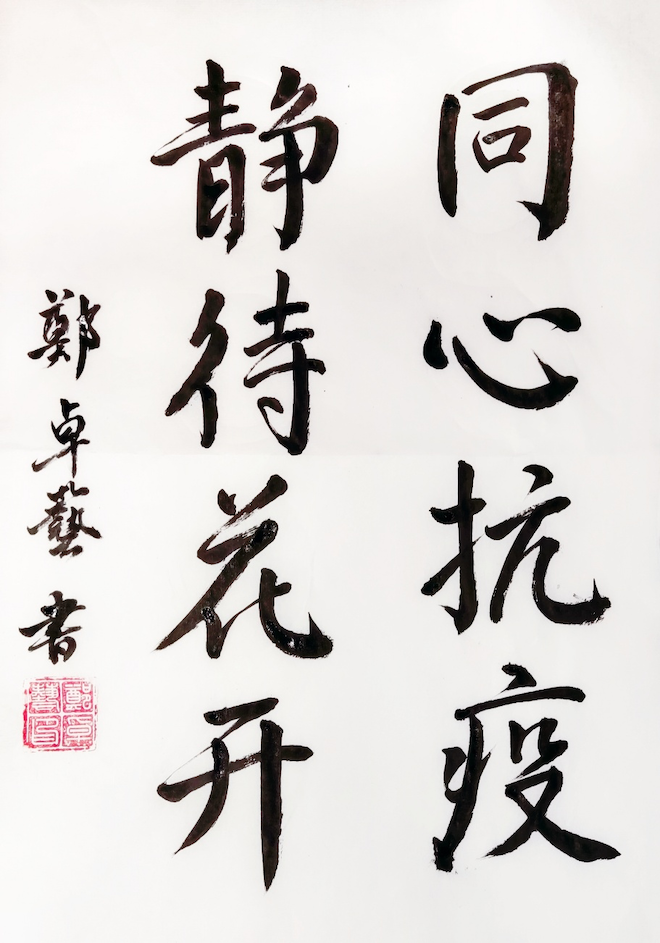 同心抗疫
静待花开
鄭卓藝书
鄭卓藝印